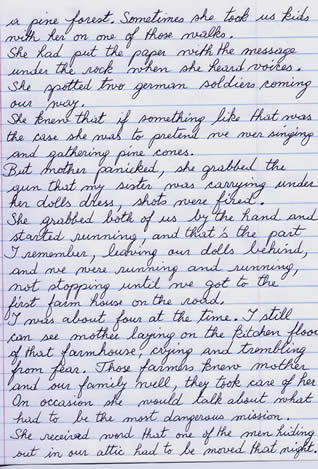 a pine forest. Sometimes she took us kids
with her on one of those walks.
She had put the paper with the message
under the rock when she heard voices.
She spotted two german soldiers coming
our way.
She knew that if something like that was
the case she was to pretend we wer singing
and gathering pine cones.
But mother panicked, she grabbed the
gun that my sister was carrying under
her dolls dress, shots were fired.
She grabbed both of us by the hand and
started running, and that's the part
I remember, leaving our dolls behind,
and we were running and running,
not stopping until we got to the
first farm house on the road.
I was about four at the time. I still
can see mother laying on the kitchen floor
of that farmhouse, crying and trembling
from fear. Those farmers knew mother
and our family well, they took care of her
On occasion she would talk about what
had to be the most dangerous mission.
She received word that one of the men hiding
out in our attic had to be moved that night.